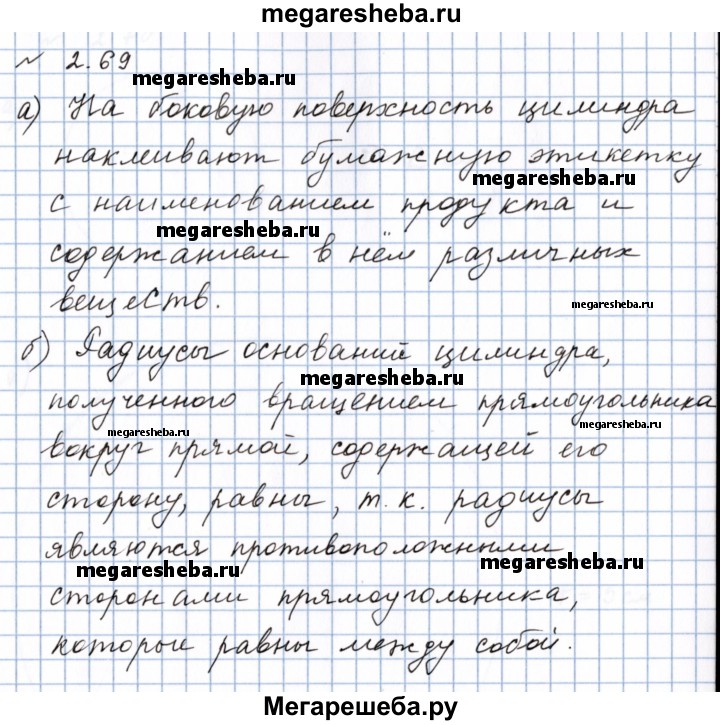 megaresheba.ru
№ 2.69
megaresheba.ru
а) На боковую поверхность цилиндра
наклеивают бумажную этикетку
megaresheba.ru
с наименованием продукта и
megaresheba.ru
содержанием в нём различных
веществ.
megaresheba.ru
б) Радиусы оснований цилиндра,
megaresheba.ru
полученного вращением прямоугольника
megaresheba.ru
вокруг прямой, содержащей его
megaresheba.ru
сторону, равны, т.к. радиусы
являются противоположными
megaresheba.ru
megaresheba.ru
сторонами прямоугольника,
которые равны между собой.
Мегарешеба.ру